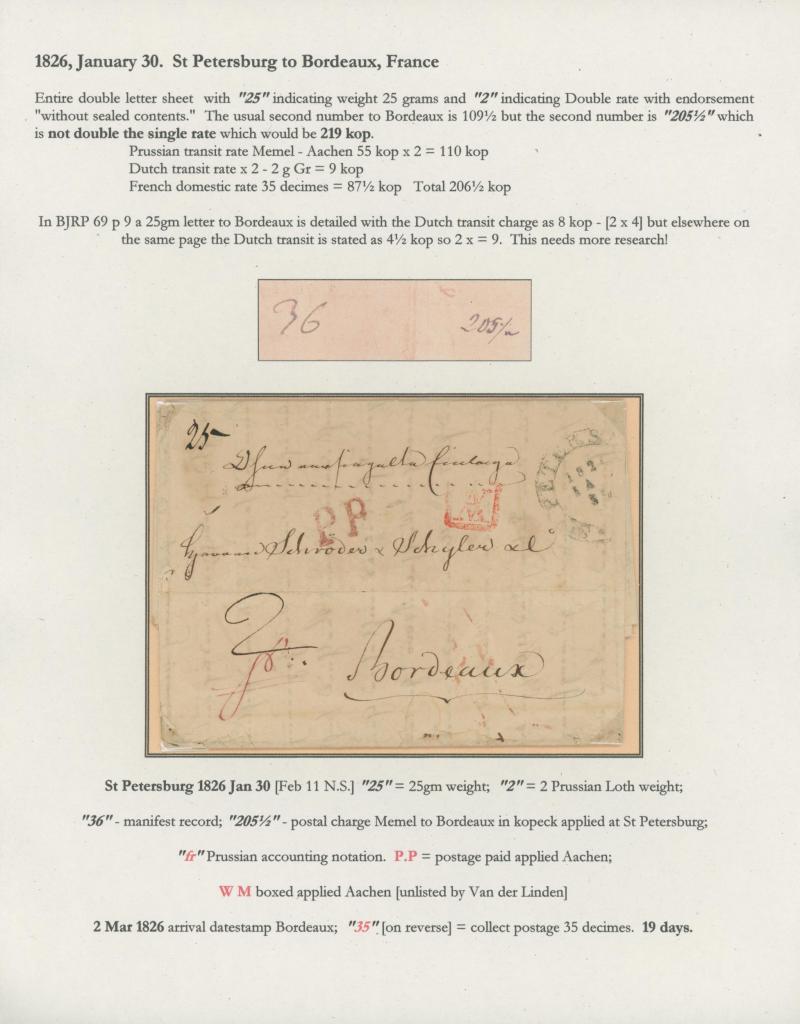 1826, January 30. St Petersburg to Bordeaux, France
Entire double letter sheet with "25" indicating weight 25 grams and "2" indicating Double rate with endorsement
"without sealed contents." The usual second number to Bordeaux is 109½ but the second number is "205½" which
is not double the single rate which would be 219 kop.
Prussian transit rate Memel - Aachen 55 kop x 2 = 110 kop
Dutch transit rate x 2 - 2 g Gr = 9 kop
French domestic rate 35 decimes = 87½ kop Total 206½ kop
In BJRP 69 p 9 a 25gm letter to Bordeaux is detailed with the Dutch transit charge as 8 kop - [2 x 4] but elsewhere on
the same page the Dutch transit is stated as 4½ kop so 2 x = 9. This needs more research!
36 205½
25
PETERS
182
P.P
Schröder & Schyler & Co
2
fr
Bordeaux
St Petersburg 1826 Jan 30 [Feb 11 N.S.] "25" = 25gm weight; "2" = 2 Prussian Loth weight;
"36" - manifest record; "205½" - postal charge Memel to Bordeaux in kopeck applied at St Petersburg;
"fr" Prussian accounting notation. P.P = postage paid applied Aachen;
W M boxed applied Aachen [unlisted by Van der Linden]
2 Mar 1826 arrival datestamp Bordeaux; "35" [on reverse] = collect postage 35 decimes. 19 days.